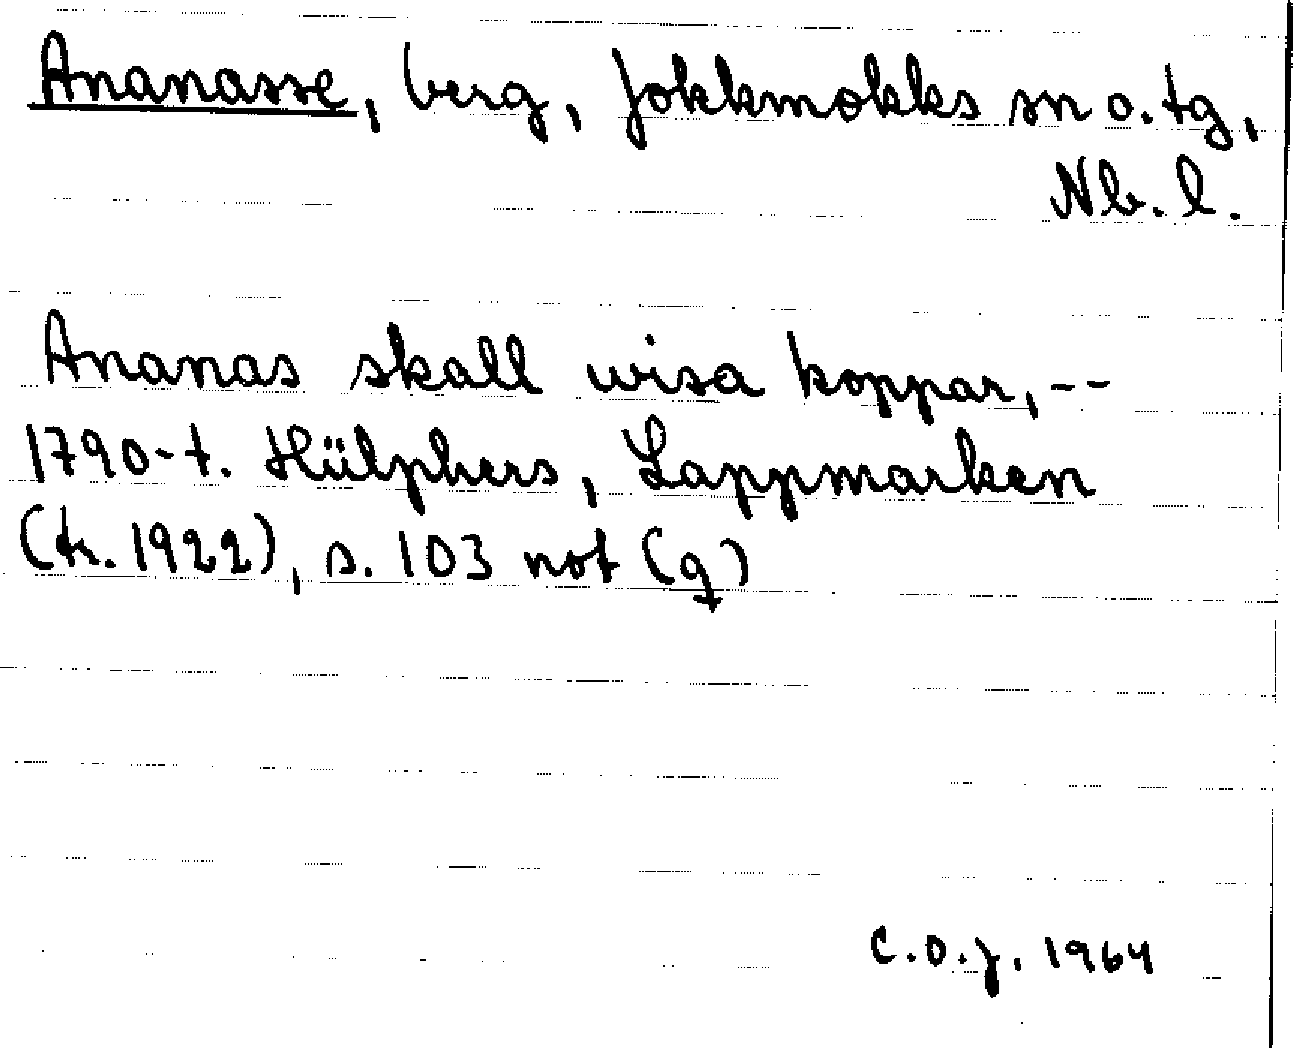 Ananasse, berg, Jokkmokks sn o. tg,
Nb. l.
Ananas skall wisa koppar, --
1790-t. Hülphers, Lappmarken
(tr. 1922), s. 103 not (q)
C.O.J. 1964